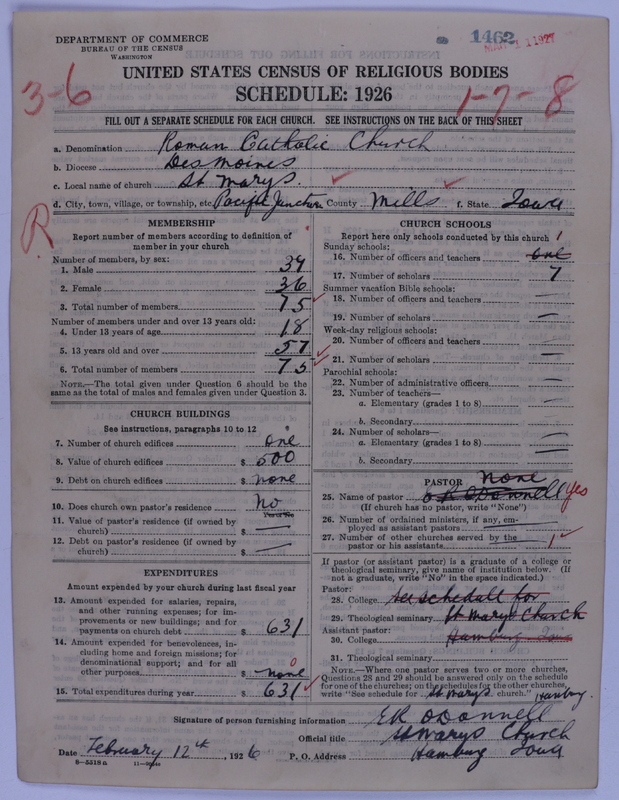 DEPARTMENT OF COMMERCE
BUREAU OF THE CENSUS
WASHINGTON
1462
UNITED STATES CENSUS OF RELIGIOUS BODIES
SCHEDULE: 1926
3-6
1-7-8
FILL OUT A SEPARATE SCHEDULE FOR EACH CHURCH. SEE INSTRUCTIONS ON THE BACK OF THIS SHEET
a. Denomination Roman Catholic Church
b. Diocese Des Moines
c. Local name of church St Marys.
d. City, town, village, or township, etc. Pacific Junction County Mills f. State Iowa
R
MEMBERSHIP
Report number of members according to definition of
member in your church
Number of members, by sex:
1. Male 39
2. Female 36
3. Total number of members 75
Number of members under and over 13 years old:
4. Under 13 years of age 18
5. 13 years old and over 57
6. Total number of members 75
NOTE.—The total given under Question 6 should be the
same as the total of males and females given under Question 3.
CHURCH BUILDINGS
See instructions, paragraphs 10 to 12
7. Number of church edifices one
8. Value of church edifices $ 500
9. Debt on church edifices $ none
10. Does church own pastor's residence? No
11. Value of pastor's residence (if owned by
church) $ —
12. Debt on pastor's residence (if owned by
church) $ —
EXPENDITURES
Amount expended by your church during last fiscal year
13. Amount expended for salaries, repairs,
and other running expenses; for im-
provements or new buildings; and for
payments on church debt $ 631
14. Amount expended for benevolences, in-
cluding home and foreign missions; for
denominational support; and for all
other purposes $ none 0
15. Total expenditures during year $ 631
CHURCH SCHOOLS
Report here only schools conducted by this church
Sunday schools: 1
16. Number of officers and teachers one
17. Number of scholars 7
Summer vacation Bible schools:
18. Number of officers and teachers —
19. Number of scholars —
Week-day religious schools:
20. Number of officers and teachers —
21. Number of scholars —
Parochial schools:
22. Number of administrative officers —
23. Number of teachers—
a. Elementary (grades 1 to 8) —
b. Secondary —
24. Number of scholars—
a. Elementary (grades 1 to 8) —
b. Secondary —
PASTOR None
25. Name of pastor E R O'Donnell yes
(If church has no pastor, write "None")
26. Number of ordained ministers, if any, em-
ployed as assistant pastors —
27. Number of other churches served by the
pastor or his assistants 1
If pastor (or assistant pastor) is a graduate of a college or
theological seminary, give name of institution below. (If
not a graduate, write "No" in the space indicated.)
Pastor:
28. College see schedule for
29. Theological seminary St Marys Church
Assistant pastor:
30. College Hamburg Iowa
31. Theological seminary
NOTE.—Where one pastor serves two or more churches,
Questions 28 and 29 should be answered only on the schedule
for one of the churches; on the schedules for the other churches,
write "See schedule for St Marys church." Hamburg.
Signature of person furnishing information E R O'Donnell
Official title St Marys Church
Date February 12th, 1926 P. O. Address Hamburg Iowa